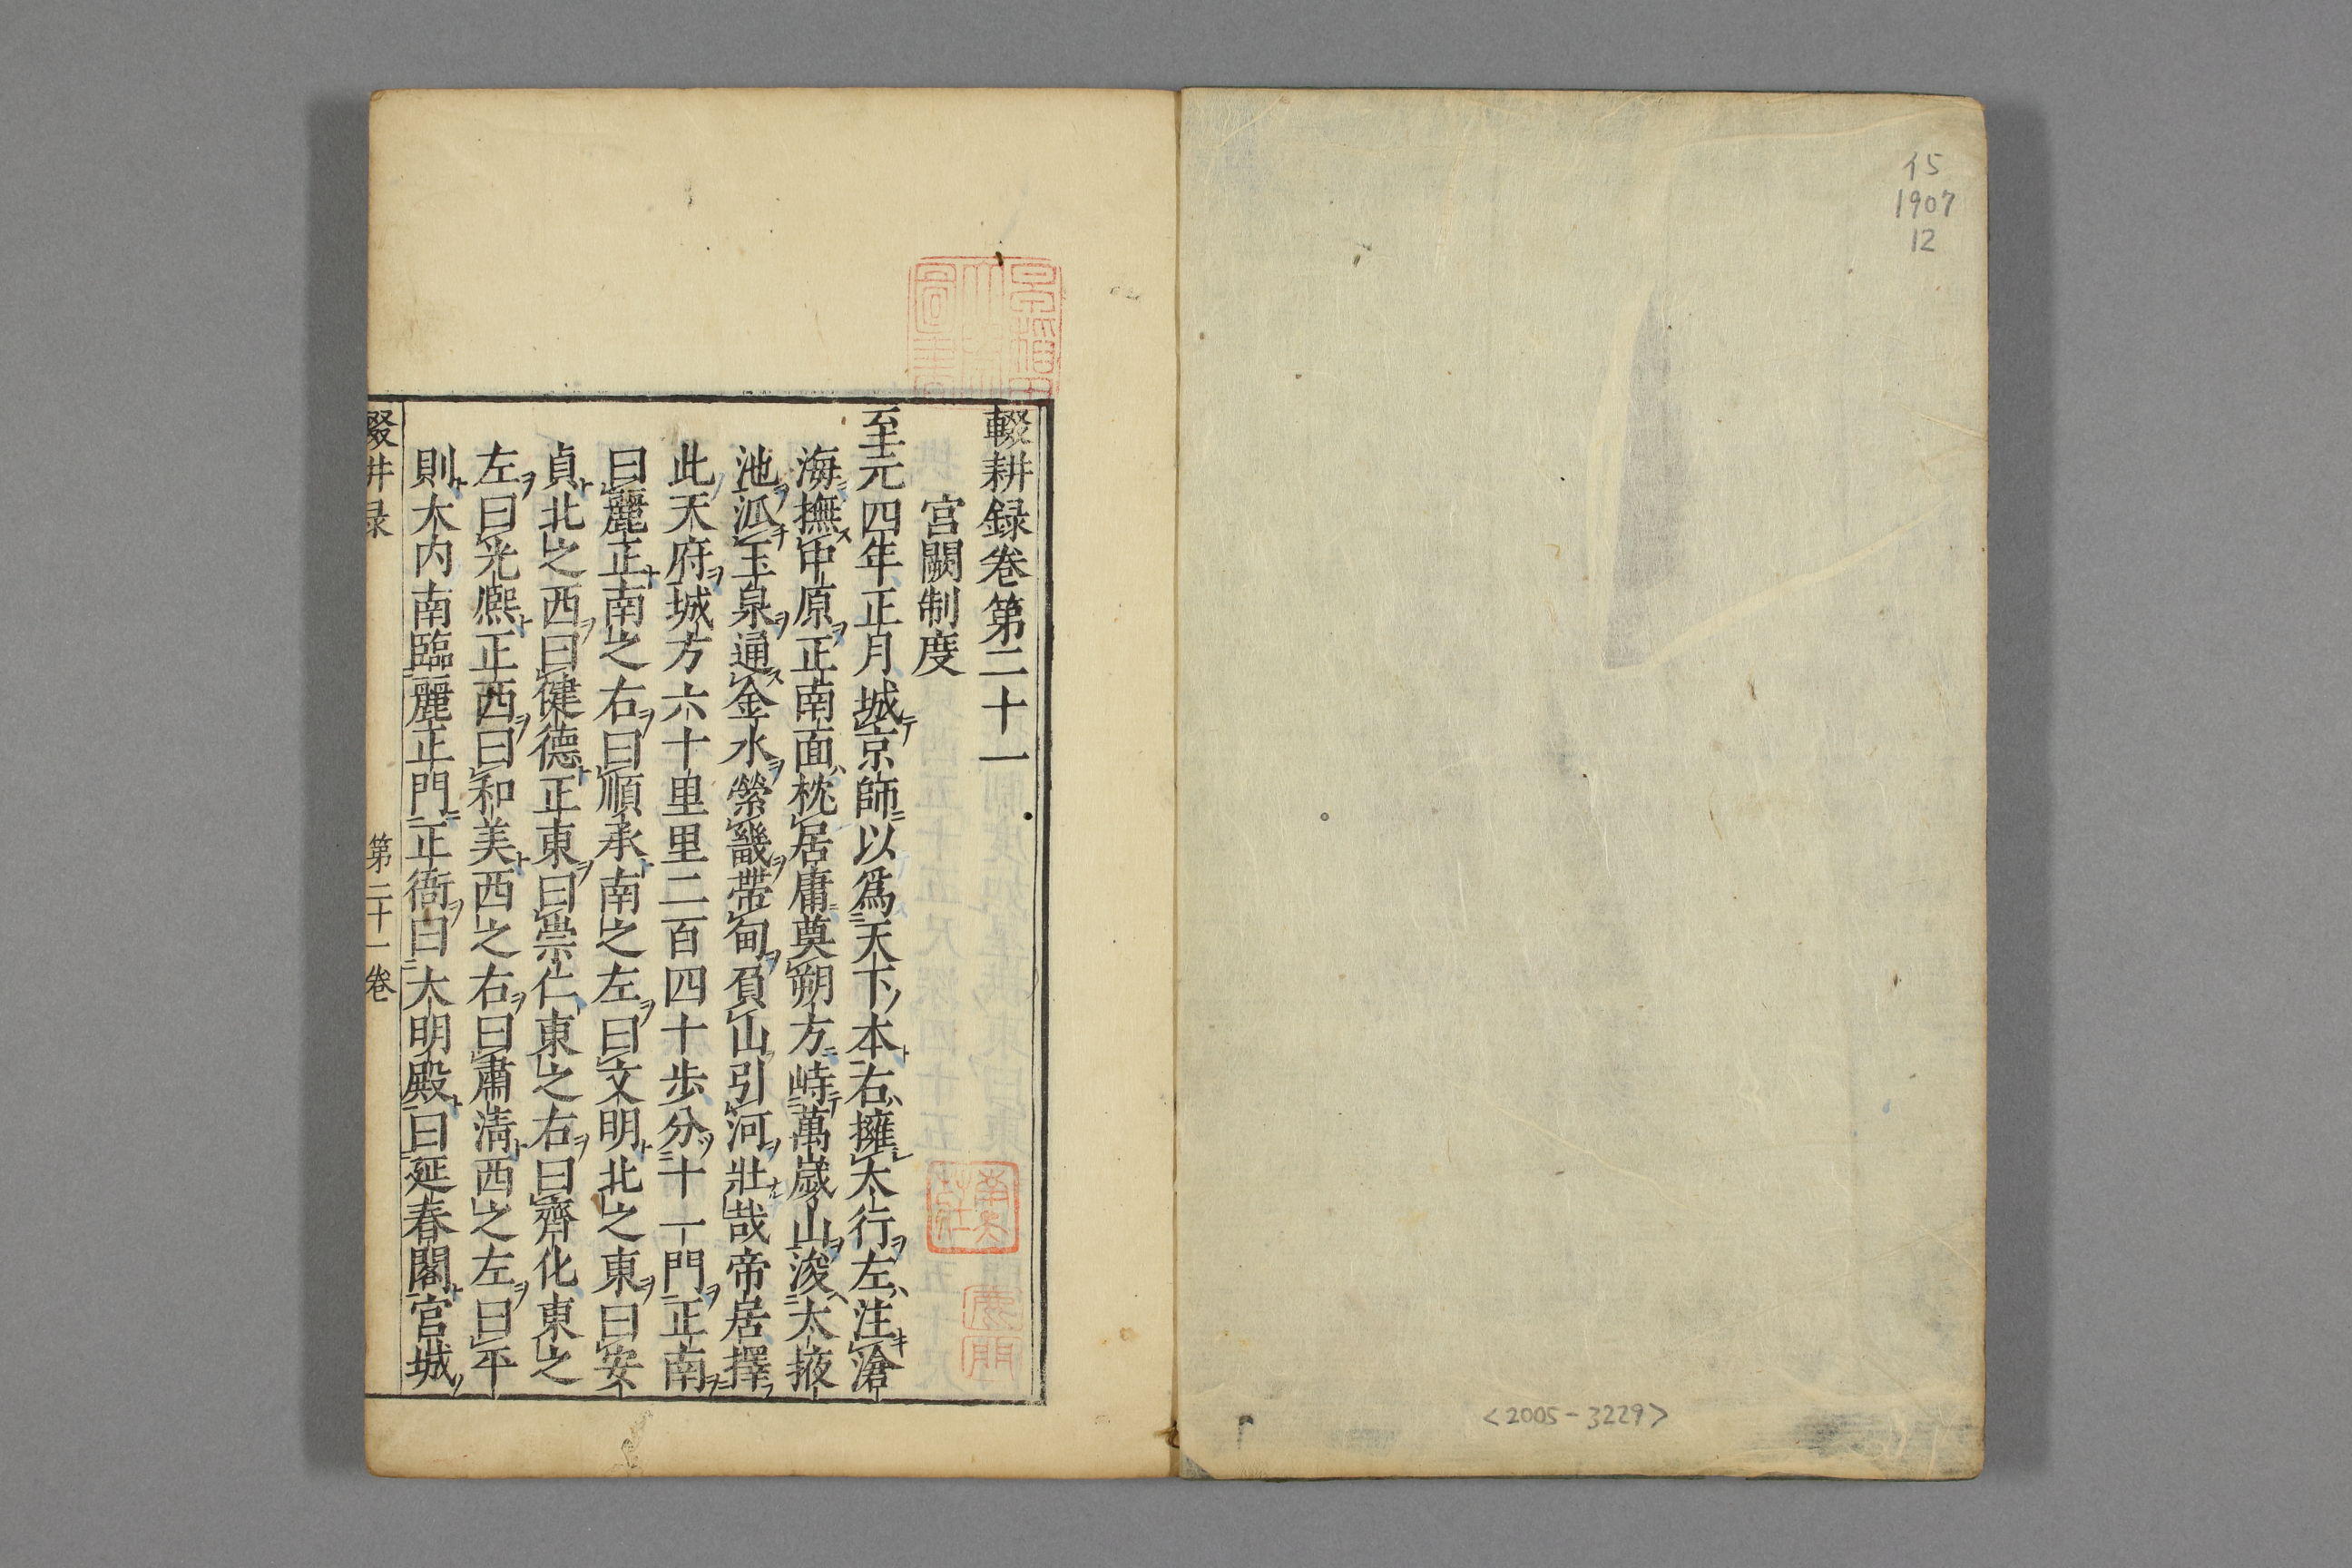 イ5
1907
12
<2005-3229>
輟耕録巻第二十一
宮闕制度
至元四年正月城京師以爲天下本右擁太行左注滄
海撫中原正南面枕居庸奠朔方峙萬歲山浚太掖
池派玉泉通金水縈畿帶甸負山引河壯哉帝居擇
此天府城方六十里里二百四十歩分十一門正南
曰麗正南之右曰順承南之左曰文明北之東曰安
貞北之西曰健德正東曰崇仁東之右曰齊化東之
左曰光熈正西曰和美西之右曰肅淸西之左曰平
則大内南臨麗正門正衙曰大明殿曰延春閣宮城
第二十一巻